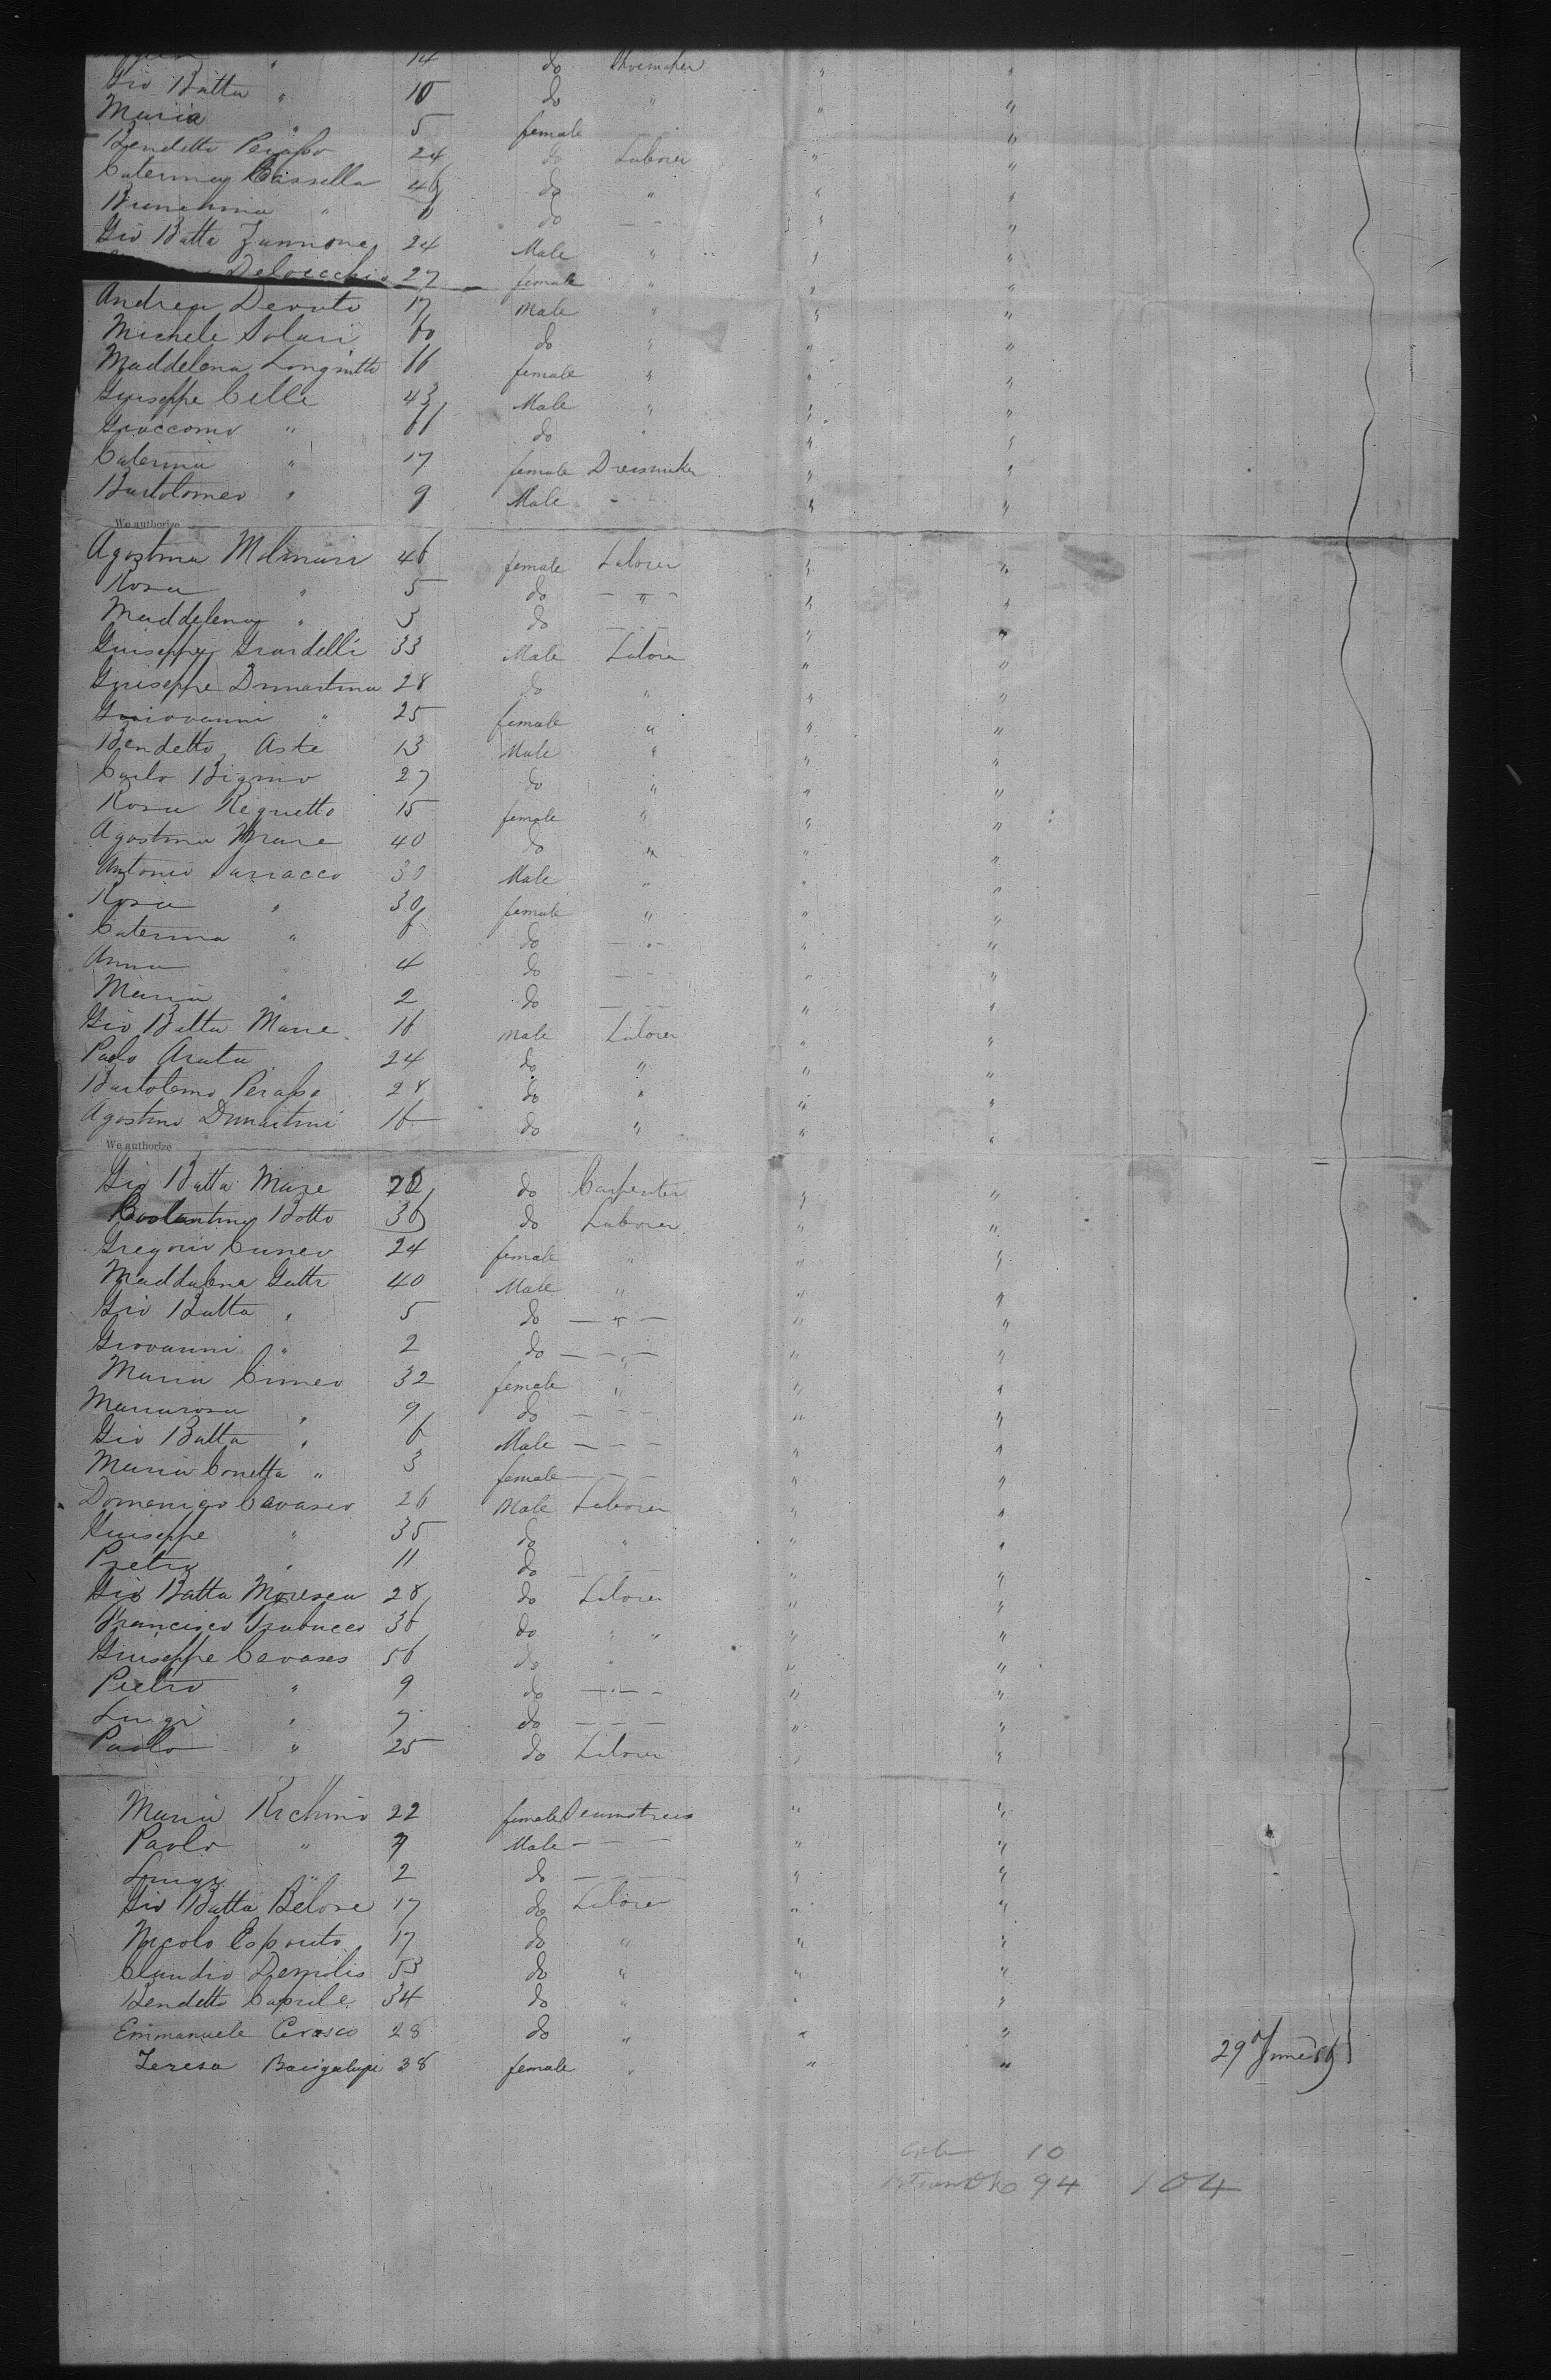 " 14 do Shoemaker " "
Gio Batta " 10 do " " "
Maria " 5 female - " "
Bendetto Perasso 24 do Laborer " "
Caterina Cassella 46 do " " "
" do - " "
Gio Batta Zannone 24 Male " " "
Delvecchio 27 female " " "
Andrea Devoto 17 Male " " "
Michele Solari 60 do " " "
Maddelena Longinotti 16 female " " "
Guiseppe Celle 43 Male " " "
Giaccomo " do " " "
Caterina " 17 female Dressmaker " "
Bartolomeo " 9 Male - - " "
We authorize
Agostina Molinari 46 female Laborer " "
Rosa " 5 do - " - " "
Maddelena " 3 do - - " "
Guiseppe Grardelli 33 Male Labor " "
Guiseppe Dimartina 28 do " " "
Giovanni " 25 female " " "
Bendetto Aste 13 Male " " "
Carlo Bigino 27 do " " "
Rosa Regnetto 15 female " " "
Agostina Mare 40 do " " "
Antonio Sarracco 30 Male " " "
Rosa " 30 female " " "
Caterina " 6 do - " - " "
Anna " 4 do - - - " "
Maria " 2 do - - - " "
Gio Batta Mare 16 male Laborer " "
Paolo Arata 24 do " " "
Bartolomo Perasso 28 do " " "
Agostino Dimartini 16 do " " "
We authorize
Gio Batta Mare do Carpenter " "
Botto 36 do Laborer " "
Gregorio Cuneo 24 female " " "
Maddalena Gatti 40 Male " " "
Gio Batta " 5 do - " - " "
Giovanni " 2 do - " - " "
Maria Cuneo 32 female " " "
Mariarosa " 9 do - - - " "
Gio Batta " 6 Male - - - " "
Maria Conetta " 3 female - - - " "
Domenico Cavasco 26 Male Laborer " "
Guiseppe " 35 do " " "
Pietro " 11 do - - - " "
Gio Batta Moresca 28 do Laborer " "
Francisco Trabucco 36 do " " " "
Giuseppe Cavasco 56 do " " "
Pietro " 9 do - " - - " "
Luigi " 7 do - - - " "
Paolo " 25 do Laborer " "
Maria Richino 22 female Seamstress " "
Paolo " 4 Male - - - " "
Luigi " 2 do - - - " "
Gio Batta Belore 17 do Laborer " "
Nicolo Esposito 17 do " " "
Claudio Demolis 53 do " " "
Bendetto Caprile 34 do " " "
Emmanuele Cerasco 28 do " " "
Teresa Bacigalupi 38 female " " "
29 June
10
94 104